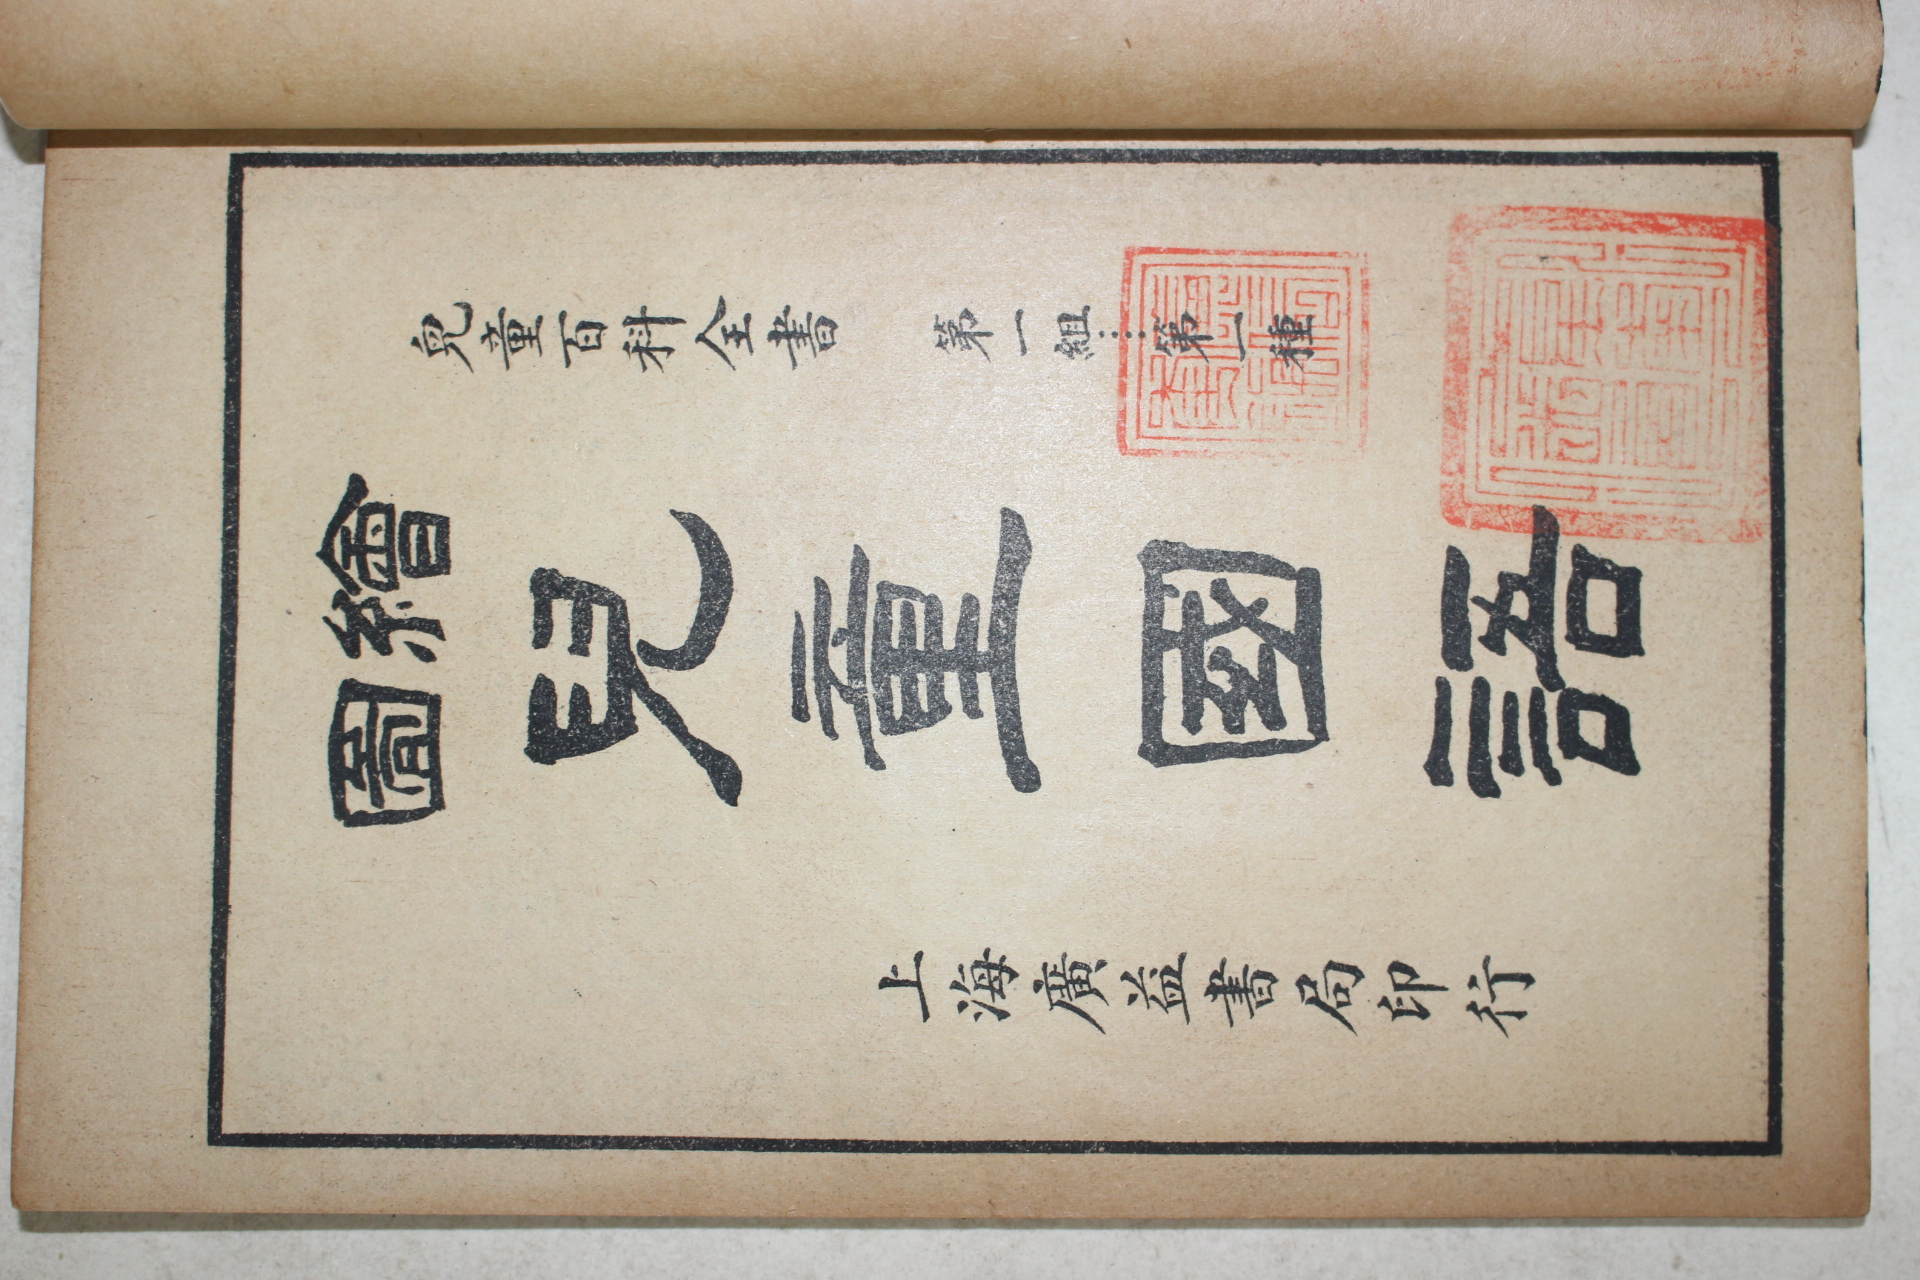 兒童百科全書　第一組……第一種
繪圖
兒童國語
上海廣益書局印行